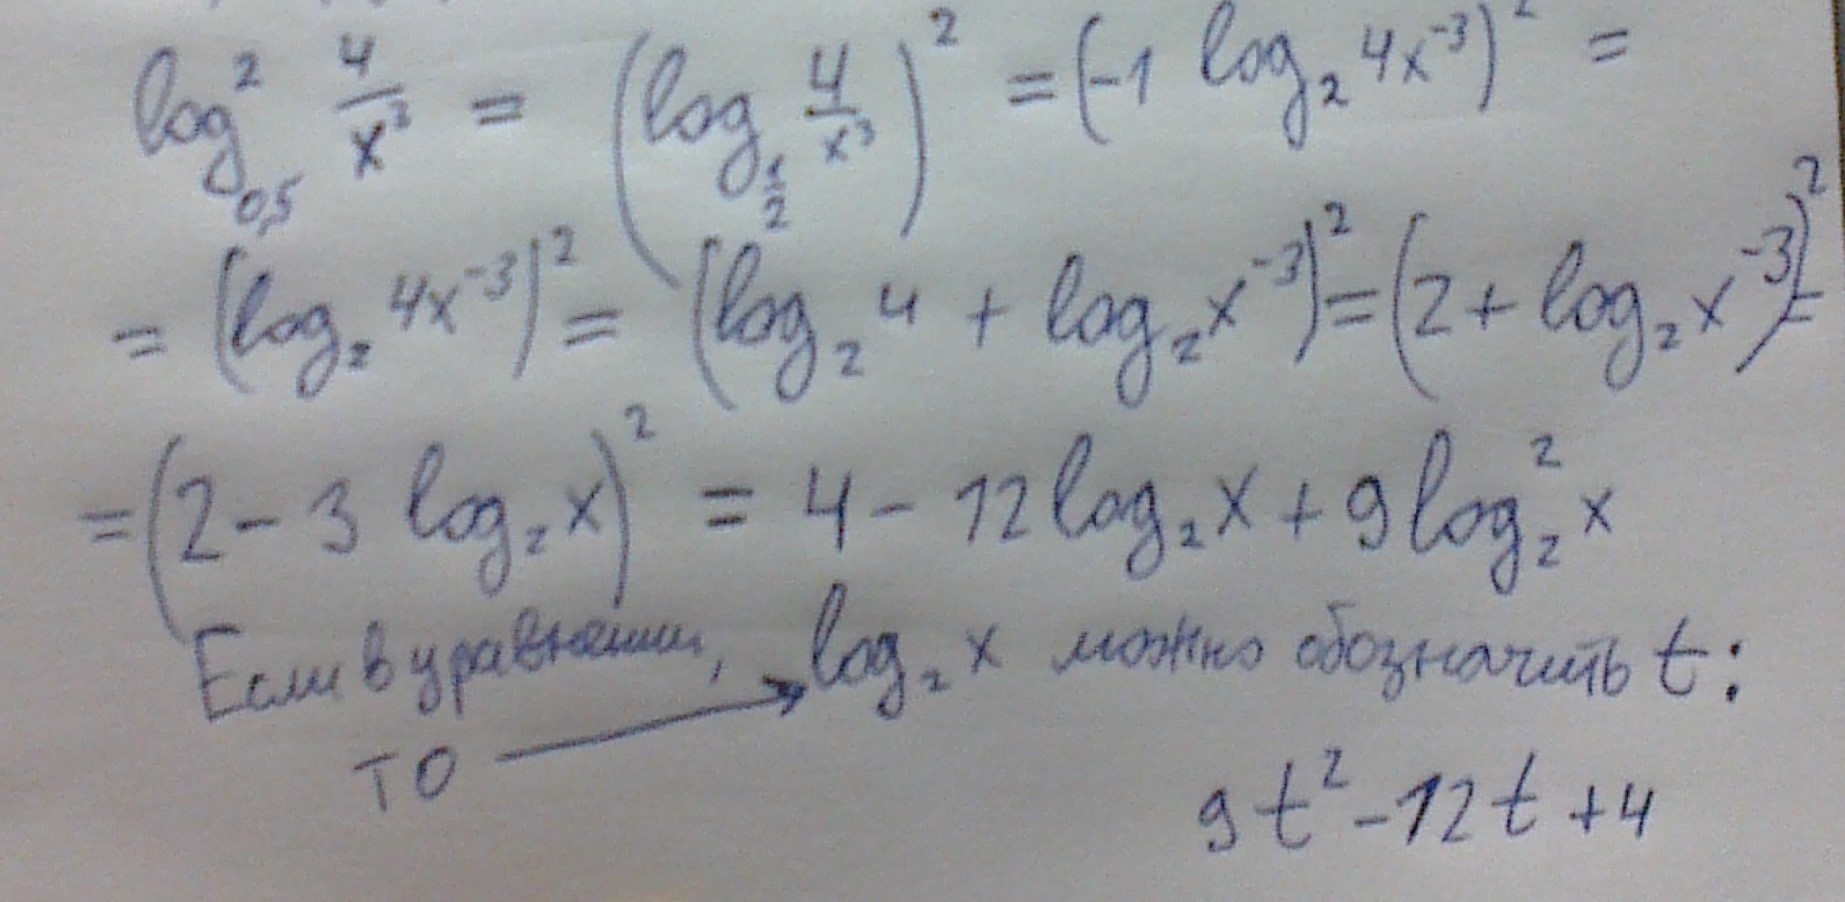 log²₀,₅ 4/x³ = (log₁/₂ 4/x³)² = (-1 log₂ 4x⁻³)² =
= (log₂ 4x⁻³)² = (log₂ 4 + log₂ x⁻³)² = (2 + log₂ x⁻³)² =
= (2 - 3 log₂ x)² = 4 - 12 log₂ x + 9 log₂² x
Если в уравнении, log₂ x можно обозначить t:
то →
9t² - 12t + 4